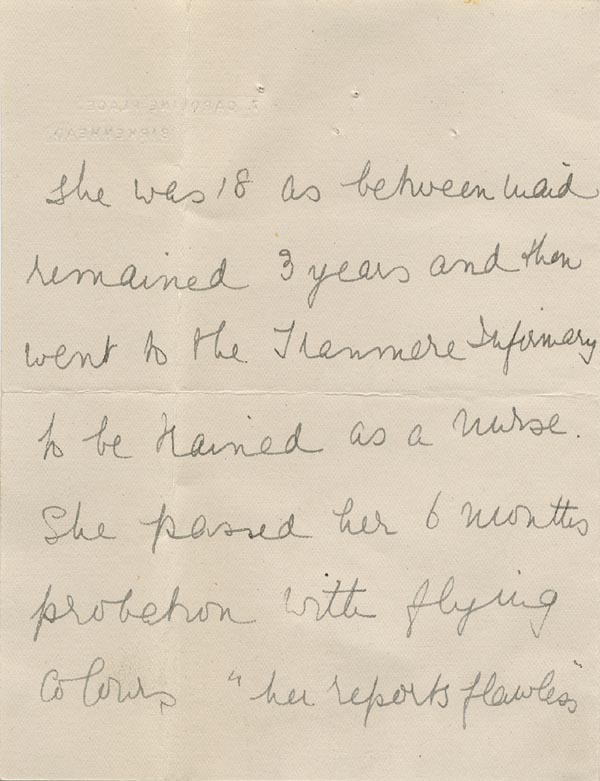 7, CAROLINE PLACE,
BIRKENHEAD.
She was 18 as between maid
remained 3 years and then
went to the Tranmere Infirmary
to be trained as a nurse.
She passed her 6 months
probation with flying
colours, "her reports flawless"